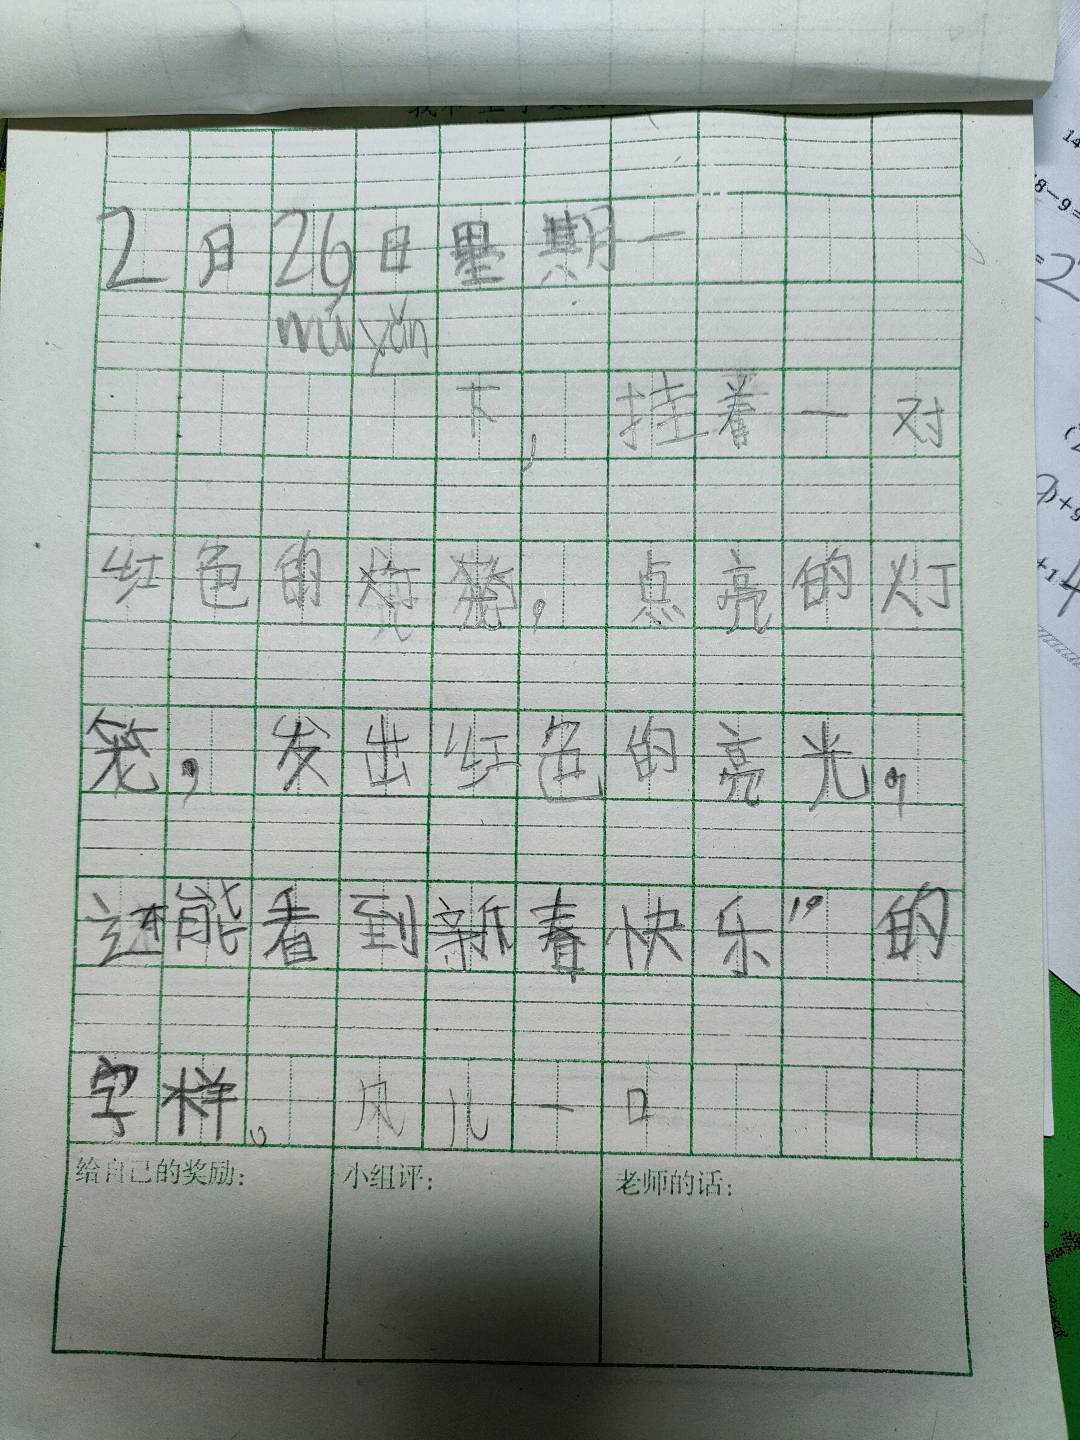 2月26日星期一
wū yán
下，挂着一对
红色的灯笼，点亮的灯
笼，发出红色的亮光，
还能看到新春快乐”的
字样。风儿一口
给自己的奖励：
小组评：
老师的话：